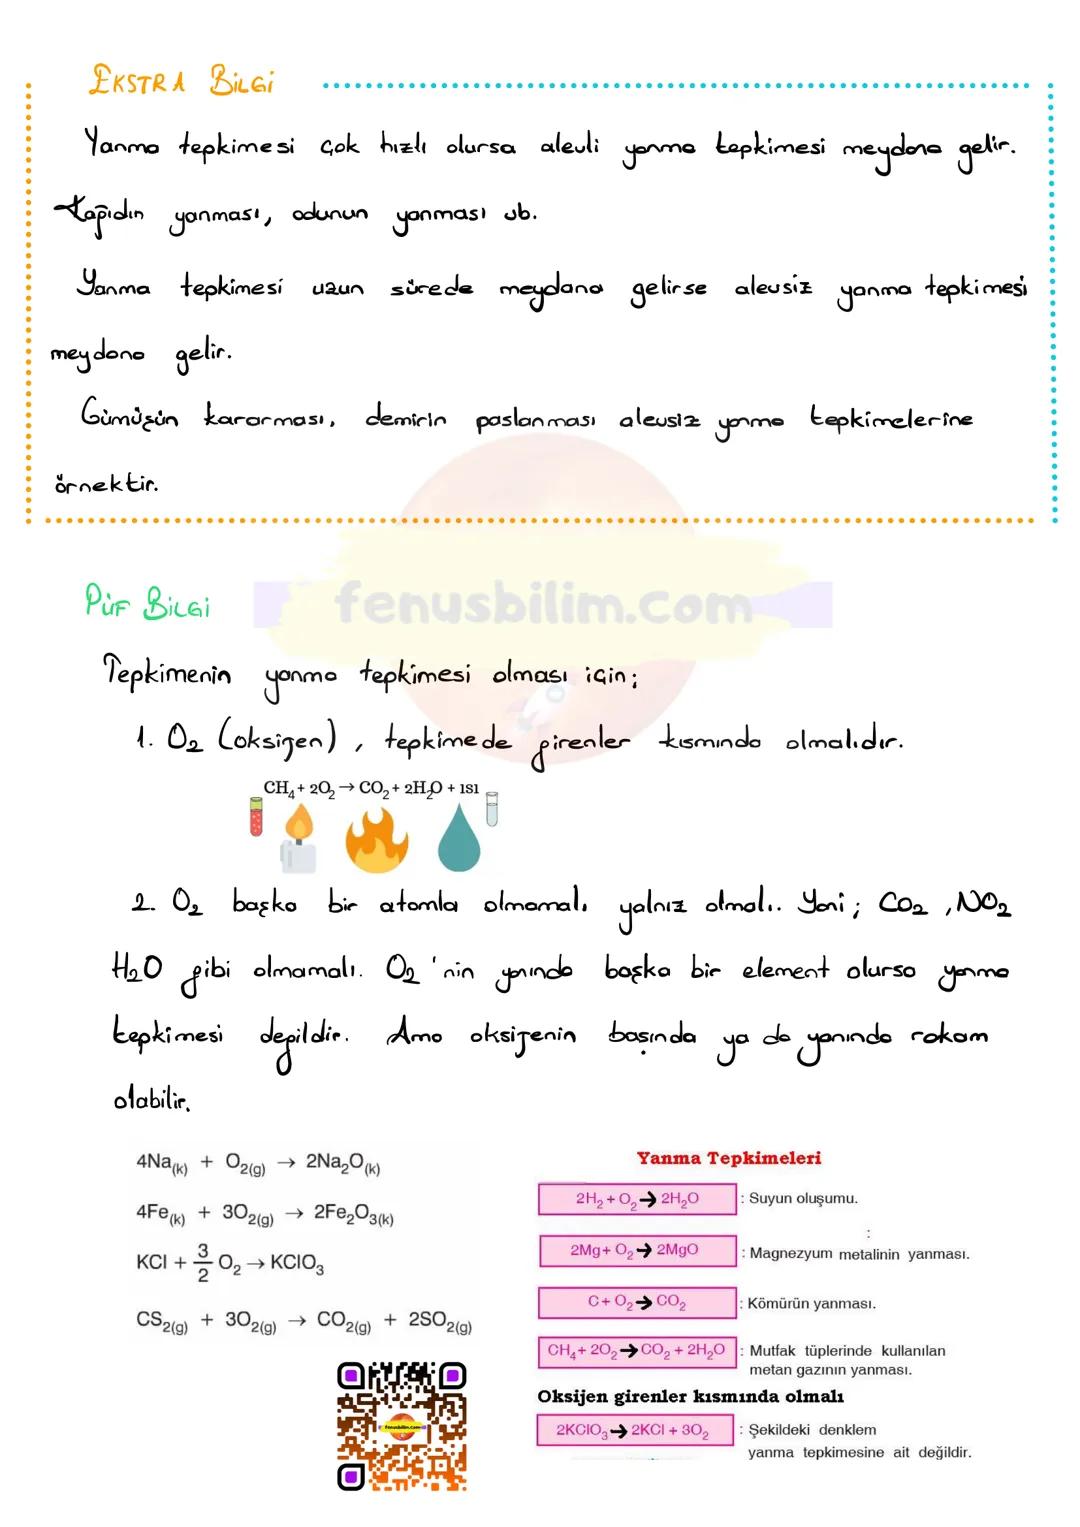 EKSTRA BİLGİ
Yanma tepkimesi çok hızlı olursa alevli yanma tepkimesi meydana gelir.
Kağıdın yanması, odunun yanması vb.
Yanma tepkimesi uzun sürede meydana gelirse alevsiz yanma tepkimesi
meydana gelir.
Gümüşün kararması, demirin paslanması alevsiz yanma tepkimelerine
örnektir.
fenusbilim.com
PÜF BİLGİ
Tepkimenin yanma tepkimesi olması için;
1. O₂ (oksijen), tepkimede girenler kısmında olmalıdır.
CH₄ + 2O₂ → CO₂ + 2H₂O + ısı
2. O₂ başka bir atomla olmamalı yalnız olmalı. Yani; CO₂, NO₂
H₂O gibi olmamalı. O₂'nin yanında başka bir element olursa yanma
tepkimesi değildir. Ama oksijenin başında ya da yanında rakam
olabilir.
4Na(k) + O₂(g) → 2Na₂O(k)
4Fe(k) + 3O₂(g) → 2Fe₂O₃(k)
KCl + 3/2 O₂ → KClO₃
CS₂(g) + 3O₂(g) → CO₂(g) + 2SO₂(g)
Fenusbilim.com
Yanma Tepkimeleri
2H₂ + O₂ → 2H₂O : Suyun oluşumu.
:
2Mg + O₂ → 2MgO : Magnezyum metalinin yanması.
C + O₂ → CO₂ : Kömürün yanması.
CH₄ + 2O₂ → CO₂ + 2H₂O : Mutfak tüplerinde kullanılan
metan gazının yanması.
Oksijen girenler kısmında olmalı
2KClO₃ → 2KCl + 3O₂ : Şekildeki denklem
yanma tepkimesine ait değildir.